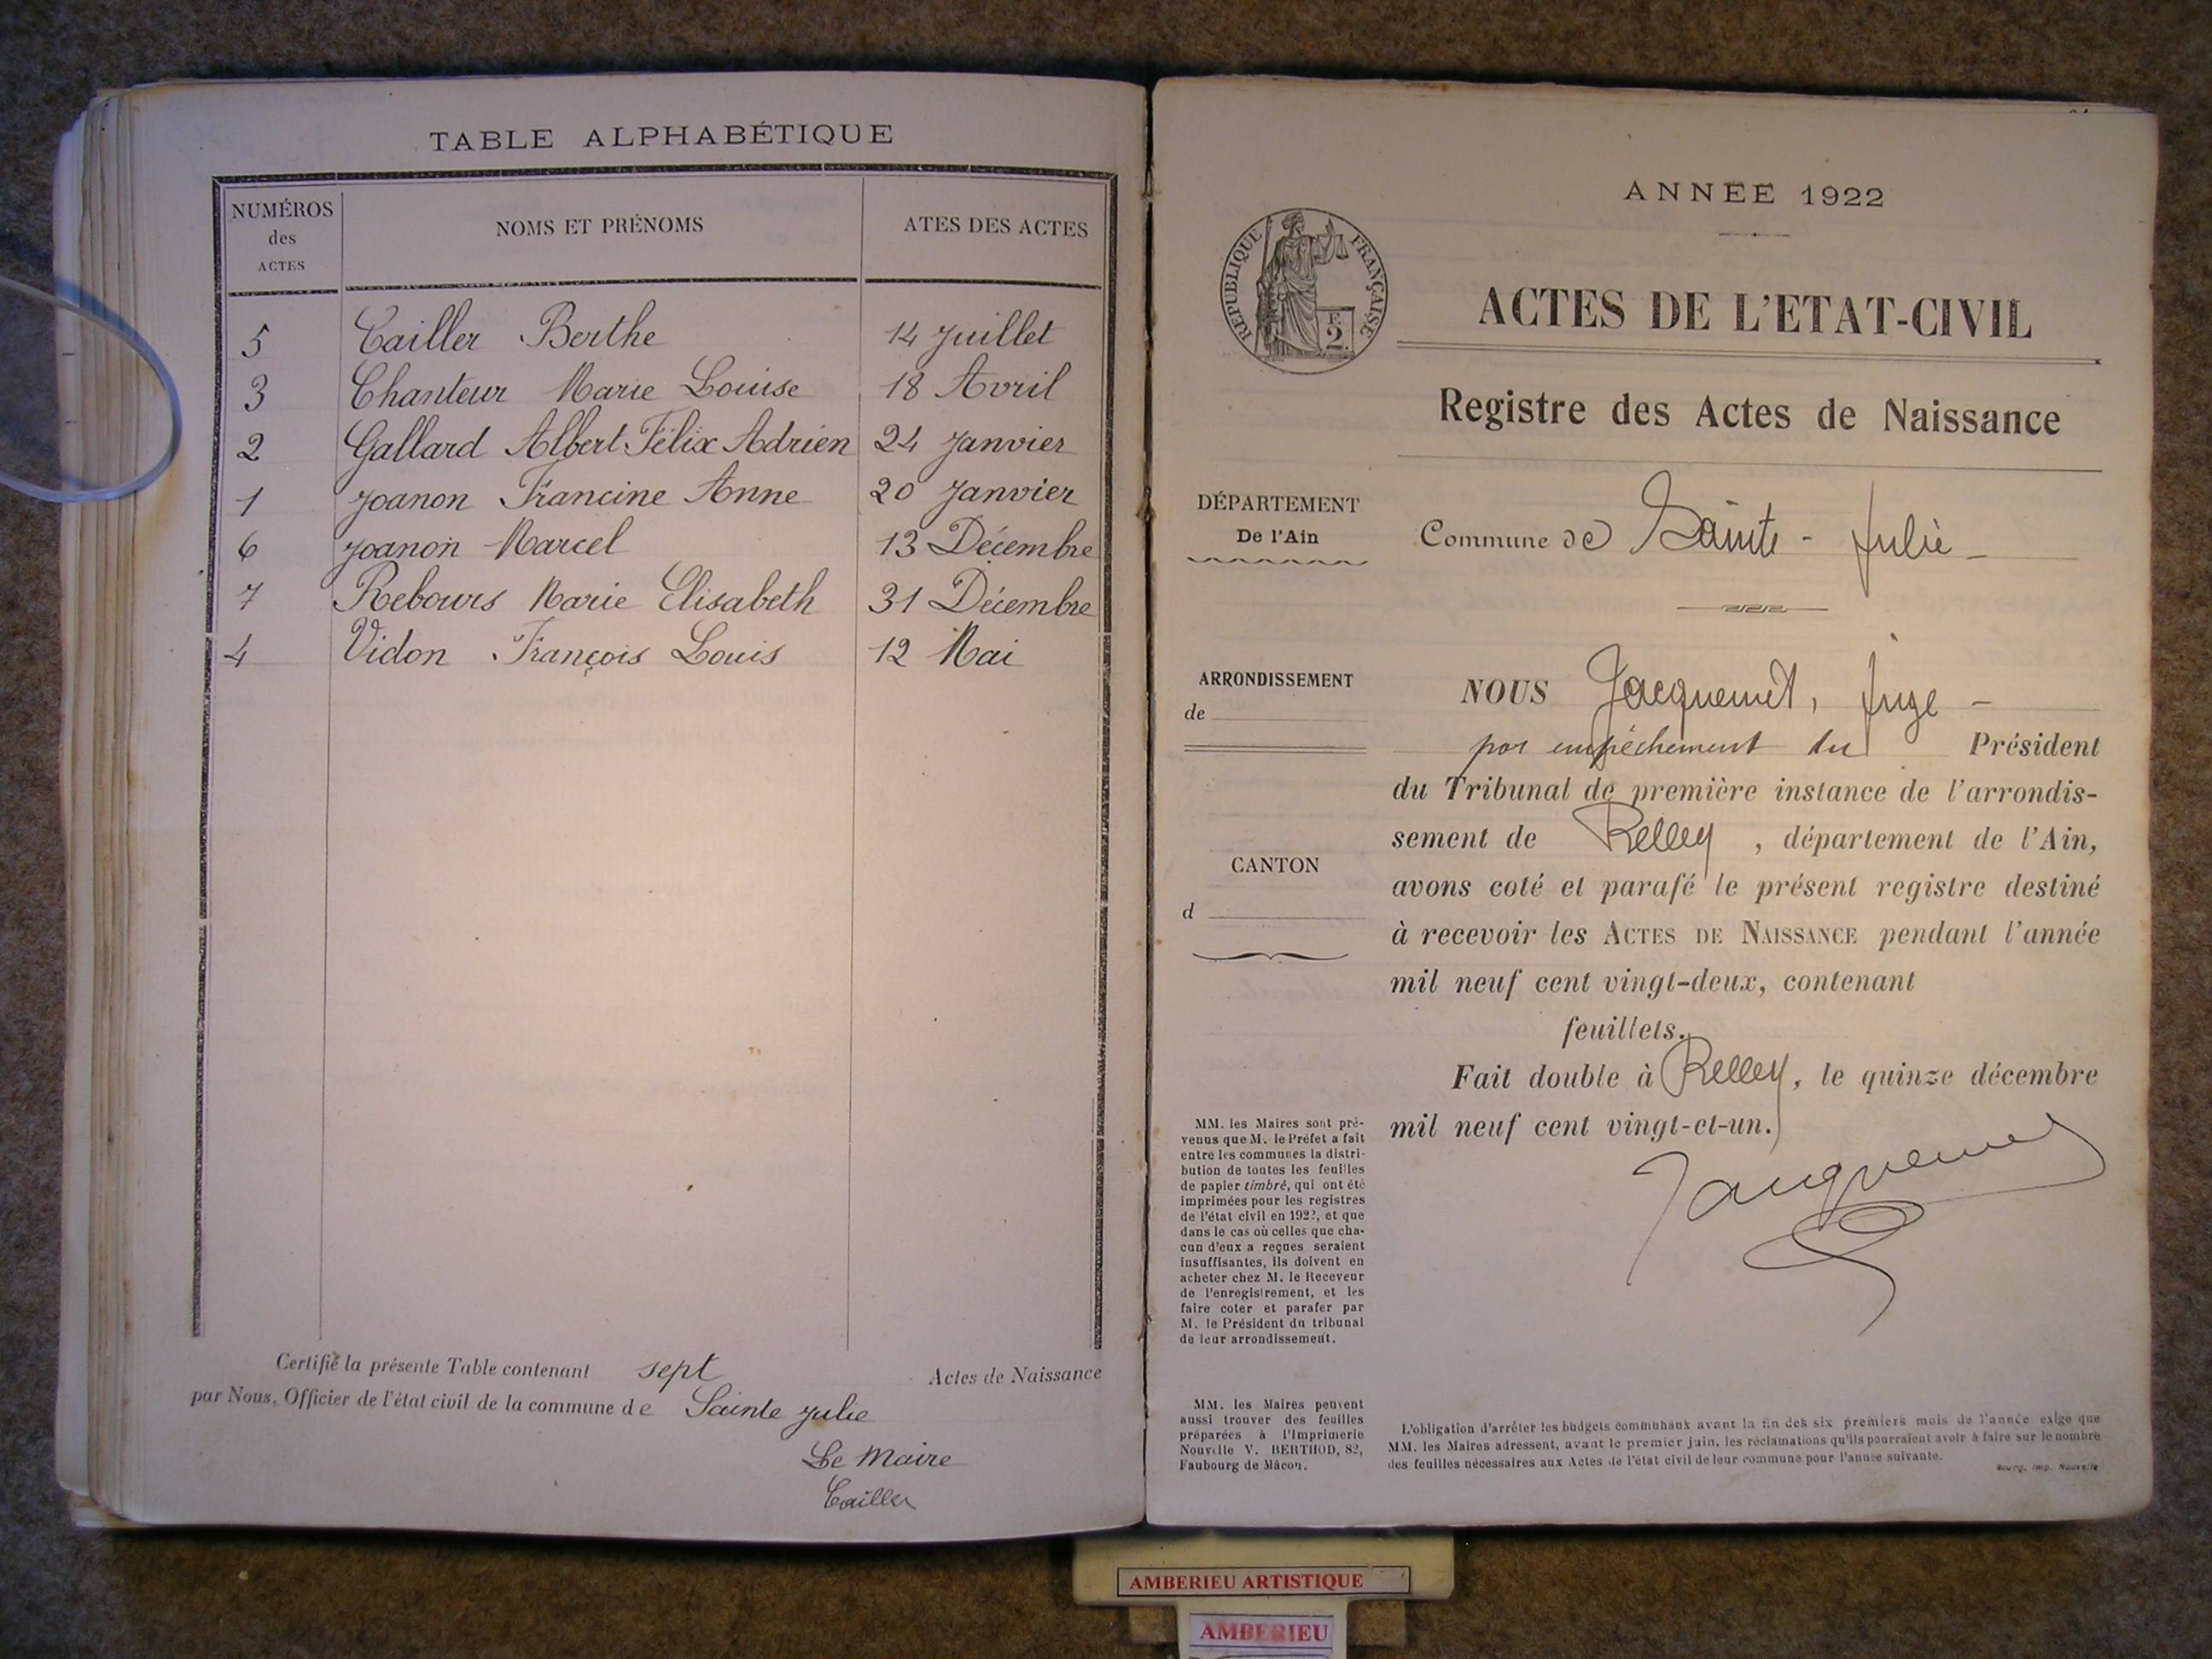 TABLE ALPHABÉTIQUE
NUMÉROS des ACTES NOMS ET PRÉNOMS ATES DES ACTES
5 Cailler Berthe 14 Juillet
3 Chanteur Marie Louise 18 Avril
2 Gallard Albert Félix Adrien 24 Janvier
1 Joanon Francine Anne 20 Janvier
6 Joanon Marcel 13 Décembre
7 Rebours Marie Elisabeth 31 Décembre
4 Vidon François Louis 12 Mai
Certifié la présente Table contenant sept Actes de Naissance
par Nous, Officier de l'état civil de la commune de Sainte Julie
Le Maire
Cailler
ANNÉE 1922
RÉPUBLIQUE FRANÇAISE
F.
2.
ACTES DE L'ETAT-CIVIL
Registre des Actes de Naissance
DÉPARTEMENT
De l'Ain
Commune de Sainte-Julie
ARRONDISSEMENT
de
CANTON
d
NOUS Jacquemet, Juge
par empêchement du Président
du Tribunal de première instance de l'arrondis-
sement de Belley, département de l'Ain,
avons coté et parafé le présent registre destiné
à recevoir les ACTES DE NAISSANCE pendant l'année
mil neuf cent vingt-deux, contenant
feuillets.
Fait double à Belley, le quinze décembre
mil neuf cent vingt-et-un.
Jacquemet
MM. les Maires sont pré-
venus que M. le Préfet a fait
entre les communes la distri-
bution de toutes les feuilles
de papier timbré, qui ont été
imprimées pour les registres
de l'état civil en 1922, et que
dans le cas où celles que cha-
cun d'eux a reçues seraient
insuffisantes, ils doivent en
acheter chez M. le Receveur
de l'enregistrement, et les
faire coter et parafer par
M. le Président du tribunal
de leur arrondissement.
MM. les Maires peuvent
aussi trouver des feuilles
préparées à l'Imprimerie
Nouvelle V. BERTHOD, 82,
Faubourg de Mâcon.
L'obligation d'arrêter les budgets communaux avant la fin des six premiers mois de l'année exige que
MM. les Maires adressent, avant le premier juin, les réclamations qu'ils pourraient avoir à faire sur le nombre
des feuilles nécessaires aux Actes de l'état civil de leur commune pour l'année suivante.
Bourg, Imp. Nouvelle
AMBERIEU ARTISTIQUE
AMBERIEU